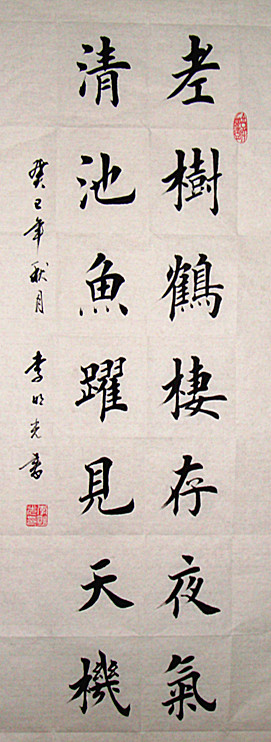 老樹鶴棲存夜氣
清池魚躍見天機
癸巳年秋月 李明光書